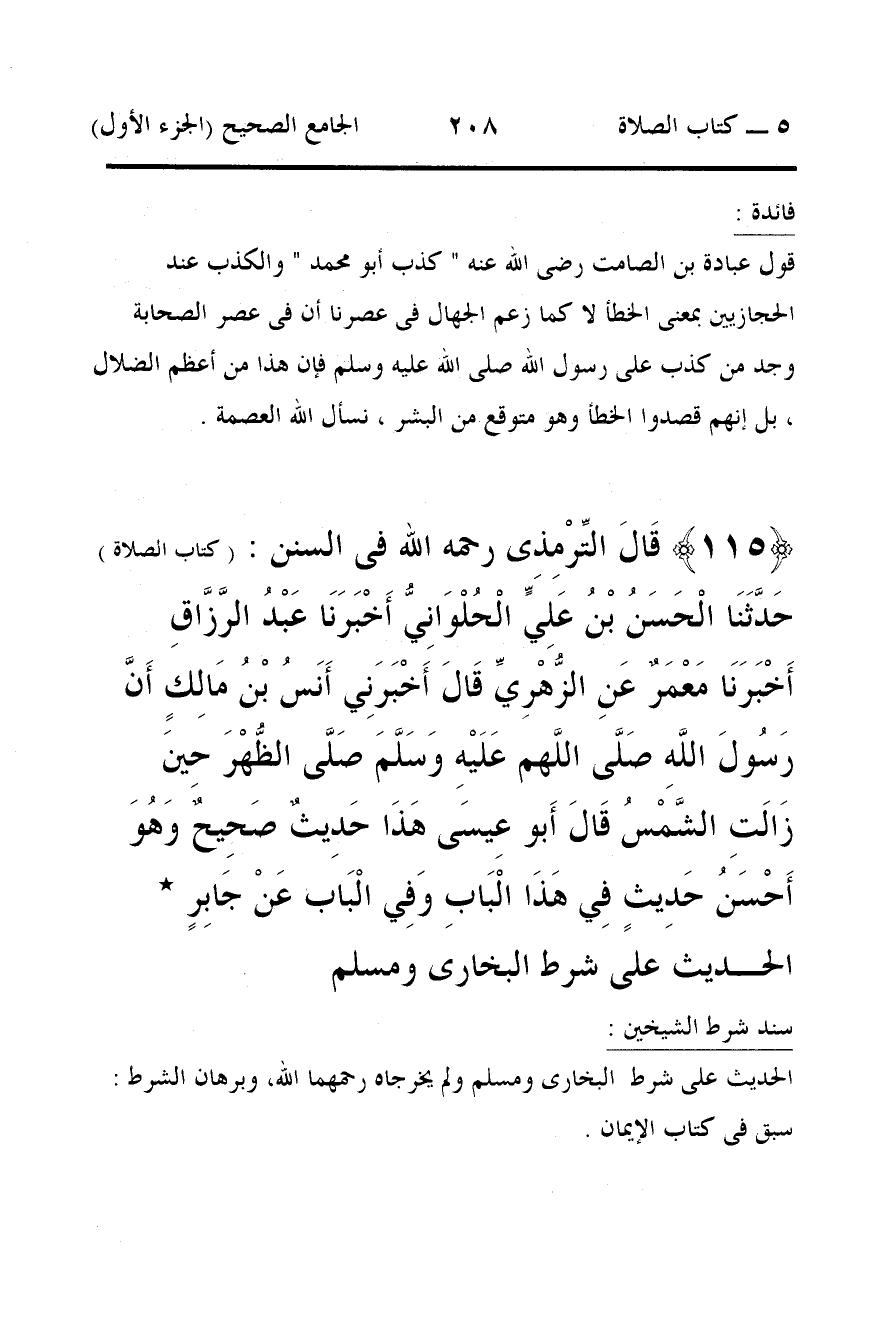 ٥ ــ كتاب الصلاة ٢٠٨ الجامع الصحيح (الجزء الأول)
فائدة :
قول عبادة بن الصامت رضى الله عنه " كذب أبو محمد " والكذب عند
الحجازيين بمعنى الخطأ لا كما زعم الجهال فى عصرنا أن فى عصر الصحابة
وجد من كذب على رسول الله صلى الله عليه وسلم فإن هذا من أعظم الضلال
، بل إنهم قصدوا الخطأ وهو متوقع من البشر ، نسأل الله العصمة .
﴿١١٥﴾ قَالَ التِّرْمِذِى رحمه الله فى السنن : ( كتاب الصلاة )
حَدَّثَنَا الْحَسَنُ بْنُ عَلِيٍّ الْحُلْوَانِيُّ أَخْبَرَنَا عَبْدُ الرَّزَّاقِ
أَخْبَرَنَا مَعْمَرٌ عَنِ الزُّهْرِيِّ قَالَ أَخْبَرَنِي أَنَسُ بْنُ مَالِكٍ أَنَّ
رَسُولَ اللَّهِ صَلَّى اللَّهم عَلَيْهِ وَسَلَّمَ صَلَّى الظُّهْرَ حِينَ
زَالَتِ الشَّمْسُ قَالَ أَبو عِيسَى هَذَا حَدِيثٌ صَحِيحٌ وَهُوَ
أَحْسَنُ حَدِيثٍ فِي هَذَا الْبَابِ وَفِي الْبَاب عَنْ جَابِرٍ *
الحـــديث على شرط البخارى ومسلم
سند شرط الشيخين :
الحديث على شرط البخارى ومسلم ولم يخرجاه رحمهما الله، وبرهان الشرط :
سبق فى كتاب الإيمان .